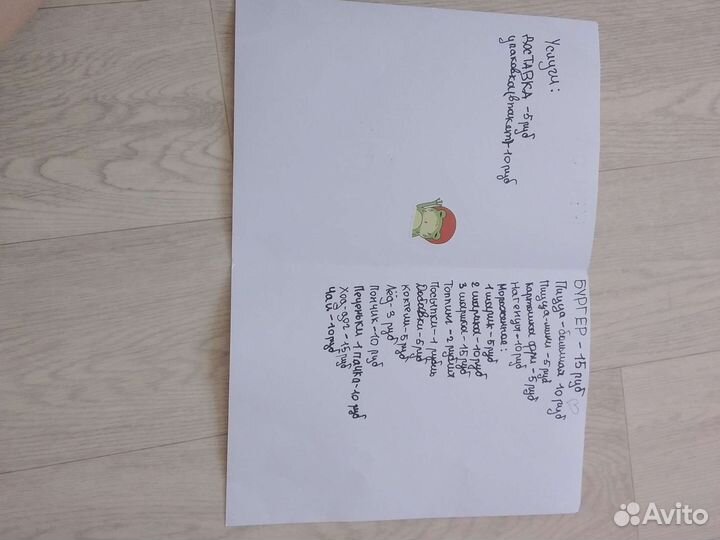 Услуги:
ДОСТАВКА -5 руб
упаковка(в пакет)-10 руб
БУРГЕР - 15 руб
Пицца - большая 10 руб
Пицца-мини - 5 руб
картошка фри - 5 руб
Нагенцы - 10 руб
Мороженная:
1 шарик - 5 руб
2 шарика - 10 руб
3 шарика - 15 руб
Топпинг - 2 рубля
Посыпки - 1 рубль
Добавки - 5 руб
коктель - 5 руб
Лёд - 3 руб
Пончик - 10 руб
Печеньки 1 пачка - 10 руб
Ход-дог - 15 руб
Чай - 10 руб
Avito